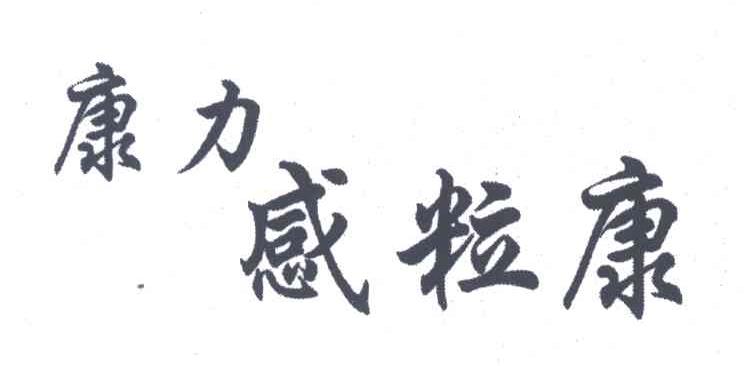 康力
感粒康